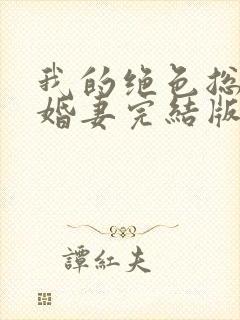 我的绝色总
婚妻完结版
譚紅夫